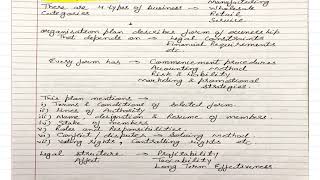 Manufacturing
There are 4 types of business → Wholesale
Categories Retail
Service
Organisation plan describes form of ownership
That depends on → Legal Constraints
Financial Requirements
etc
Every form has → Commencement procedures
Accounting method
Risk & liability
marketing & promotional
strategies.
This plan mentions →
i) Terms & Conditions of selected form.
ii) Lines of Authority
iii) Name, designation & Resume of members
iv) Stake of members
v) Roles and Responsibilities.
vi) Conflict / disputes → Solving method.
vii) Voting rights, Controlling rights etc.
Legal structure → Profitability
Affect Taxability
Long Term Effectiveness